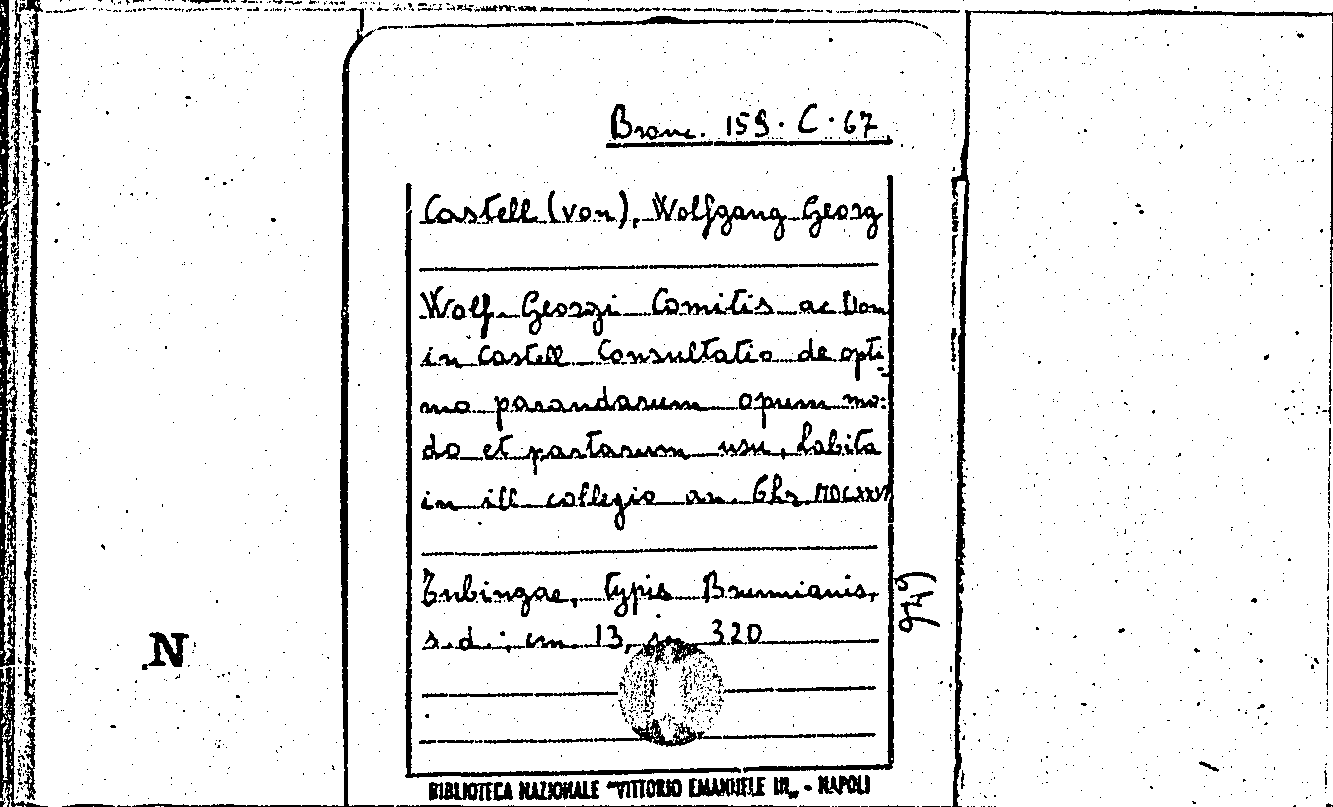 Branc. 159. C. 67
Castell (von), Wolfgang Georg
Wolf. Georgi Comitis ac Dom
in Castell Consultatio de opti-
mo parandarum opum mo-
do et partarum usu, habita
in ill. collegio an. Chr. MDCXXVI
Tubingae, typis Brunnianis,
s.d.; cm. 13, pp. 320
N
BIBLIOTECA NAZIONALE "VITTORIO EMANUELE III„ - NAPOLI